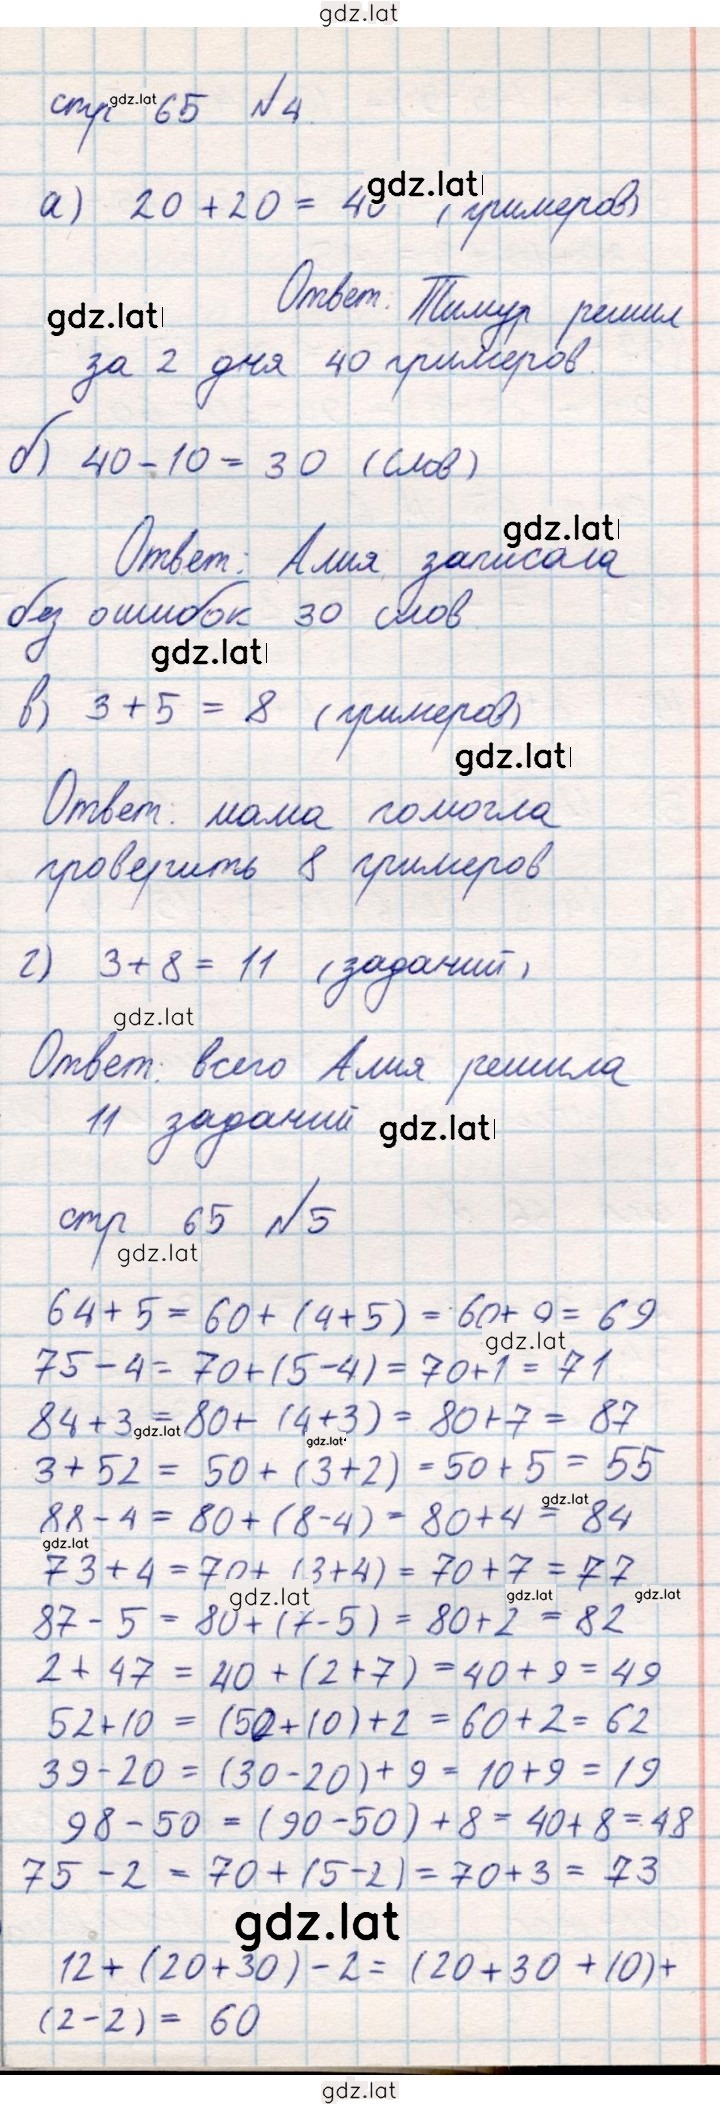 gdz.lat
стр gdz.lat 65 №4
gdz.lat
а) 20 + 20 = 40 (примеров)
Ответ: Тимур решил
gdz.lat
за 2 дня 40 примеров.
б) 40 - 10 = 30 (слов)
gdz.lat
Ответ: Алия записала
без ошибок 30 слов
gdz.lat
в) 3 + 5 = 8 (примеров)
gdz.lat
Ответ: мама помогла
проверить 8 примеров
г) 3 + 8 = 11 (заданий)
gdz.lat
Ответ: всего Алия решила
11 заданий
gdz.lat
стр 65 №5
gdz.lat
64 + 5 = 60 + (4 + 5) = 60 + 9 = 69
gdz.lat
75 - 4 = 70 + (5 - 4) = 70 + 1 = 71
84 + 3 = 80 + (4 + 3) = 80 + 7 = 87
gdz.lat
gdz.lat
3 + 52 = 50 + (3 + 2) = 50 + 5 = 55
gdz.lat
88 - 4 = 80 + (8 - 4) = 80 + 4 = 84
gdz.lat
73 + 4 = 70 + (3 + 4) = 70 + 7 = 77
gdz.lat gdz.lat gdz.lat
87 - 5 = 80 + (7 - 5) = 80 + 2 = 82
2 + 47 = 40 + (2 + 7) = 40 + 9 = 49
52 + 10 = (50 + 10) + 2 = 60 + 2 = 62
39 - 20 = (30 - 20) + 9 = 10 + 9 = 19
98 - 50 = (90 - 50) + 8 = 40 + 8 = 48
75 - 2 = 70 + (5 - 2) = 70 + 3 = 73
gdz.lat
12 + (20 + 30) - 2 = (20 + 30 + 10) +
(2 - 2) = 60
gdz.lat